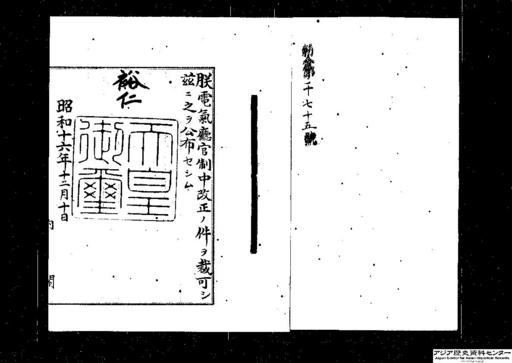 勅令第千七十五號
朕電氣廳官制中改正ノ件ヲ裁可シ
茲ニ之ヲ公布セシム
裕仁
天皇御璽
昭和十六年十二月十日
内閣
アジア歴史資料センター
Japan Center for Asian Historical Records